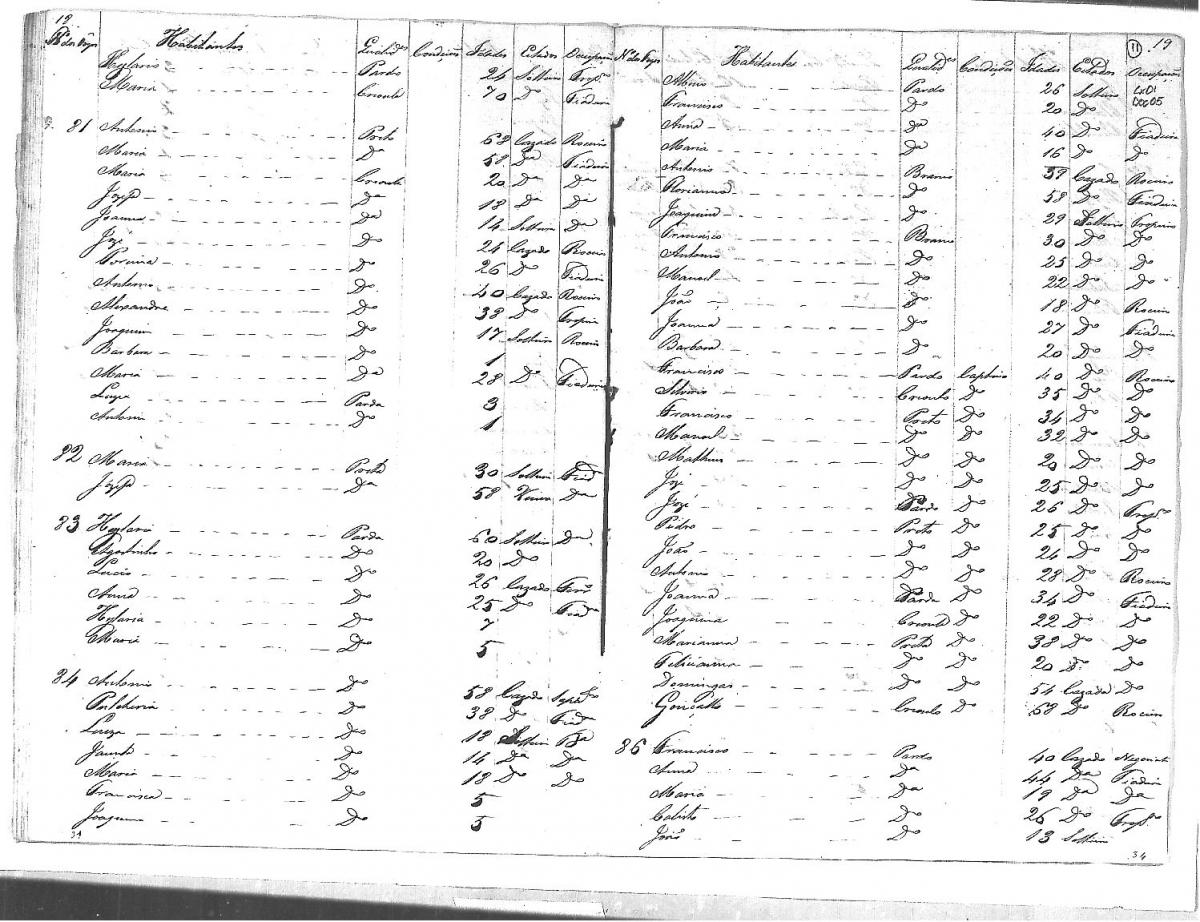 19
Nº dos Fogos Habitantes Qualides Condições Idades Estados Ocupação
Hylario Pardo 24 Solteiro Propº
Maria Crioula 70 Dº Fiadeira
81 Antonio Preto 68 Cazado Roceiro
Maria Dª 58 Dª Fiadeira
Maria Crioula 20 Dª Dª
Jozefa Dª 18 Dª Dª
Joanna Dª 14 Solteira Dª
Joze Dº 24 Cazado Roceiro
Porcina Dº 26 Dº Fiadeira
Antonio Dº 40 Cazado Roceiro
Alexandre Dº 38 Dº
Joaquim Dº 17 Solteiro Roceiro
Barbara Dº 1
Maria Dª 28 Dº Fiadeira
Luiza Parda 3
Antonio Dº 1
82 Maria Preta 30 Solteira Fiadª
Jozefa Dª 58 Dª
83 Hylaria Parda 60 Solteira Dª
Agostinho Dº 20 Dº
Lucio Dº 26 Cazado
Anna Dº 25 Dº Fiadª
Hylaria Dº 7
Maria Dº 5
84 Antonio Dº 58 Cazado
Pulcheria Dº 38 Dº Fiadª
Luiza Dº 18 Solteira Dª
Dº 14 Dª Dª
Maria Dº 18 Dº Dº
Francisca Dº 5
Joaquim Dº 5
34
11 19
Nº dos Fogos Habitantes Qualides Condições Idades Estados Ocupação
Albino Pardo 26 Solteiro
Francisco Dº 20 Dº
Anna Dª 40 Dº Fiadeira
Maria Dª 16 Dº Dº
Antonio Branco 59 Cazado Roceiro
Florianna Dº 58 Dº Fiadeira
Joaquim Dº 29 Solteiro
Francisco Branco 30 Dº Dº
Antonio Dº 25 Dº Dº
Manoel Dº 22 Dº Dº
João Dº 18 Dº Roceiro
Joanna Dº 27 Dº Fiadeira
Barbara Dº 20 Dº Dº
Francisco Pardo Captivo 40 Dº Roceiro
Silverio Crioulo Dº 35 Dº Dº
Francisco Preto Dº 34 Dº Dº
Manoel Dº Dº 32 Dº Dº
Matheus Dº Dº 20 Dº Dº
Joze Dº Dº 25 Dº Dº
Joze Pardo Dº 26 Dº Propº
Pedro Preto Dº 25 Dº Dº
João Dº Dº 24 Dº Dº
Antonio Dº Dº 28 Dº Roceiro
Joanna Parda Dº 34 Dº Fiadeira
Joaquina Crioula Dº 22 Dº Dº
Marianna Preta Dº 38 Dº Dº
Feliciana Dº Dº 20 Dº Dº
Domingas Dº Dº 54 Cazada Dº
Gonçallo Crioulo Dº 68 Dº Roceiro
86 Francisco Pardo 40 Cazado Negociante
Anna Dª 44 Dª Fiadeira
Maria Dª 19 Dª Dª
Calisto Dº 26 Dº Propº
João Dº 13 Solteiro
34